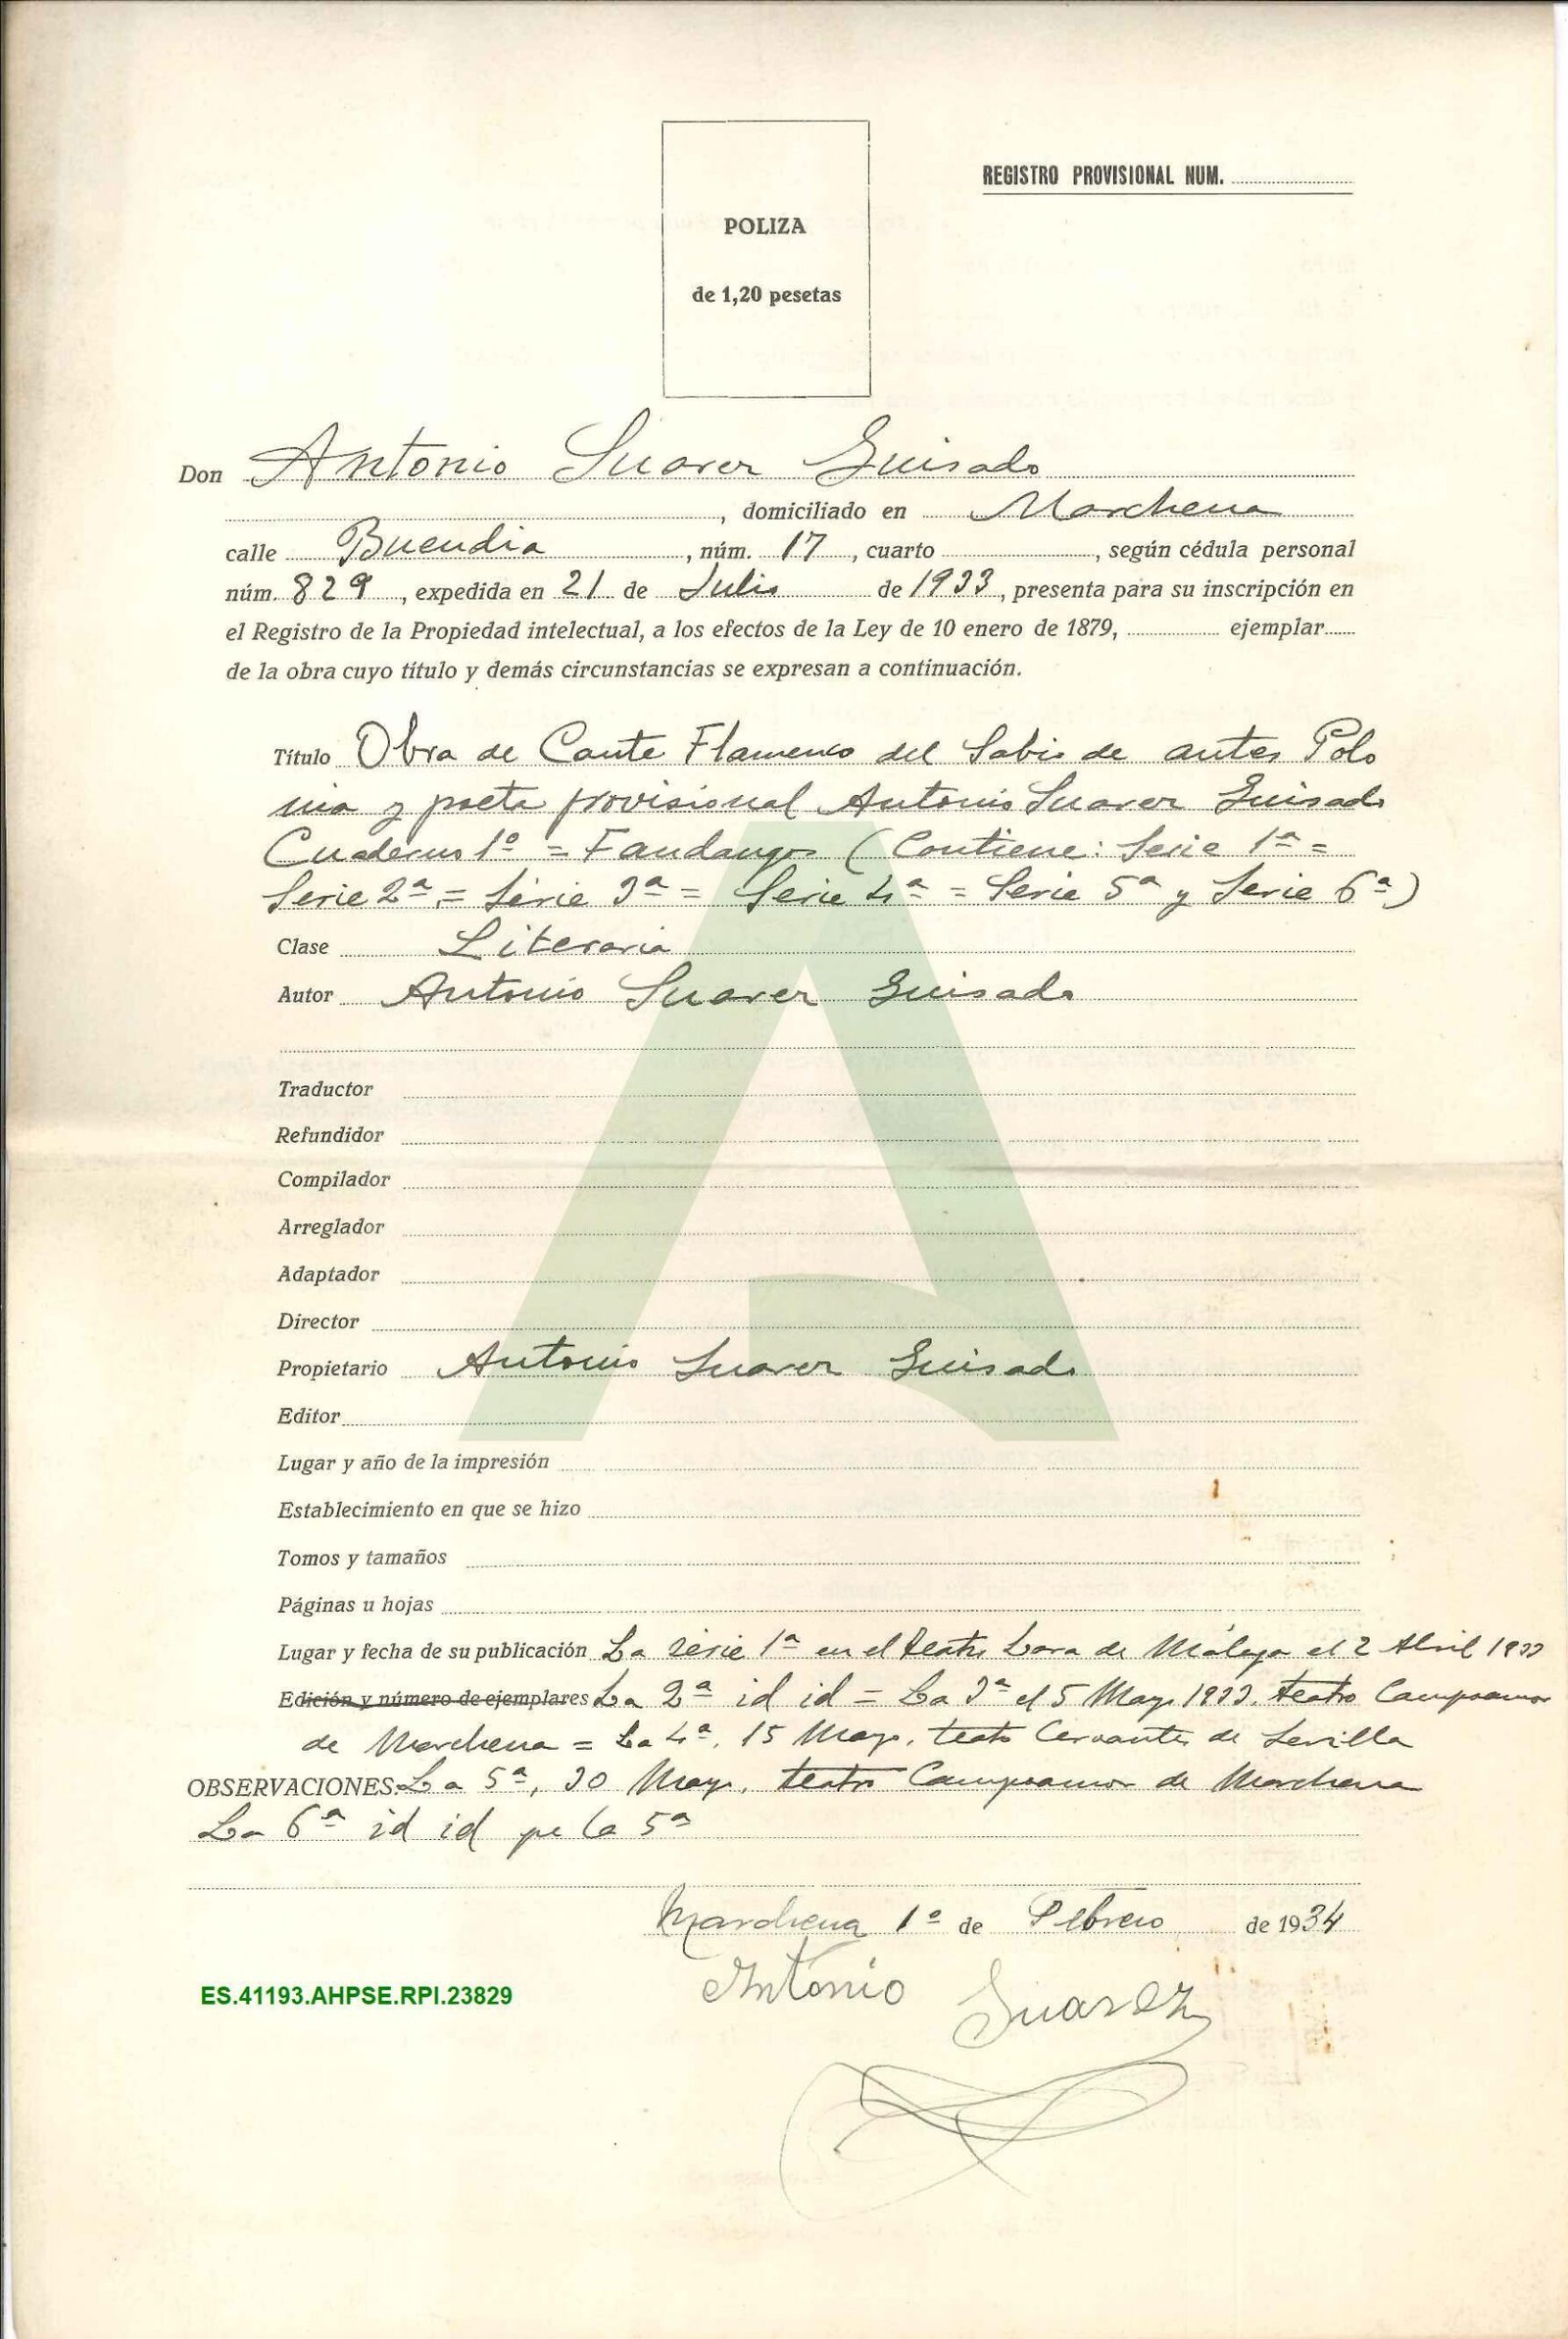 REGISTRO PROVISIONAL NUM.
POLIZA
de 1,20 pesetas
Don Antonio Suarez Guisado
, domiciliado en Marchena
calle Buendia, núm. 17, cuarto , según cédula personal
núm. 829, expedida en 21 de Julio de 1933, presenta para su inscripción en
el Registro de la Propiedad intelectual, a los efectos de la Ley de 10 enero de 1879, ejemplar
de la obra cuyo título y demás circunstancias se expresan a continuación.
Título Obra de Cante Flamenco del Sabio de antes Polo
nio y poeta provisional Antonio Suarez Guisado
Cuaderno 1º = Fandangos (Contiene: Serie 1ª =
Serie 2ª = Serie 3ª = Serie 4ª = Serie 5ª y Serie 6ª)
Clase Literaria
Autor Antonio Suarez Guisado
Traductor
Refundidor
Compilador
Arreglador
Adaptador
Director
Propietario Antonio Suarez Guisado
Editor
Lugar y año de la impresión
Establecimiento en que se hizo
Tomos y tamaños
Páginas u hojas
Lugar y fecha de su publicación La serie 1ª en el teatro Lara de Málaga el 2 Abril 1933
Edición y número de ejemplares La 2ª id id = La 3ª el 5 Mayo 1933. teatro Campoamor
de Marchena = La 4ª, 15 Mayo, teatro Cervantes de Sevilla
OBSERVACIONES: La 5ª, 30 Mayo, teatro Campoamor de Marchena
La 6ª id id que la 5ª
Marchena 1º de Febrero de 1934
Antonio Suarez
ES.41193.AHPSE.RPI.23829